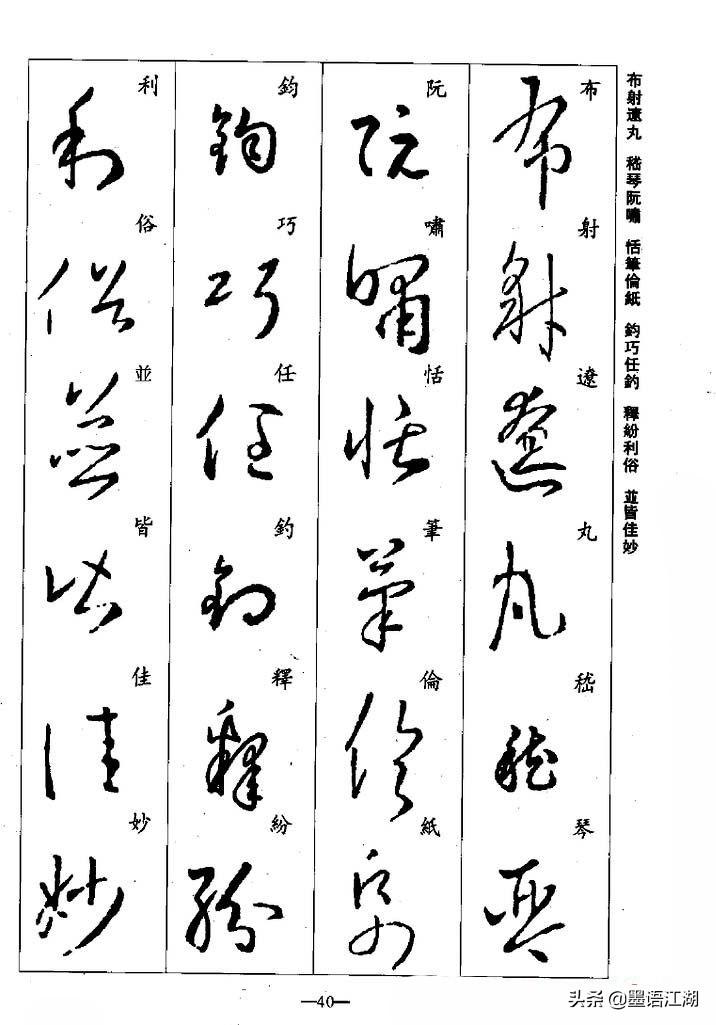 布射遼丸　嵇琴阮嘯　恬筆倫紙　鈞巧任釣　釋紛利俗　並皆佳妙
布射遼丸嵇琴
阮嘯恬筆倫紙
鈞巧任釣釋紛
利俗並皆佳妙
—40—
头条 @墨语江湖